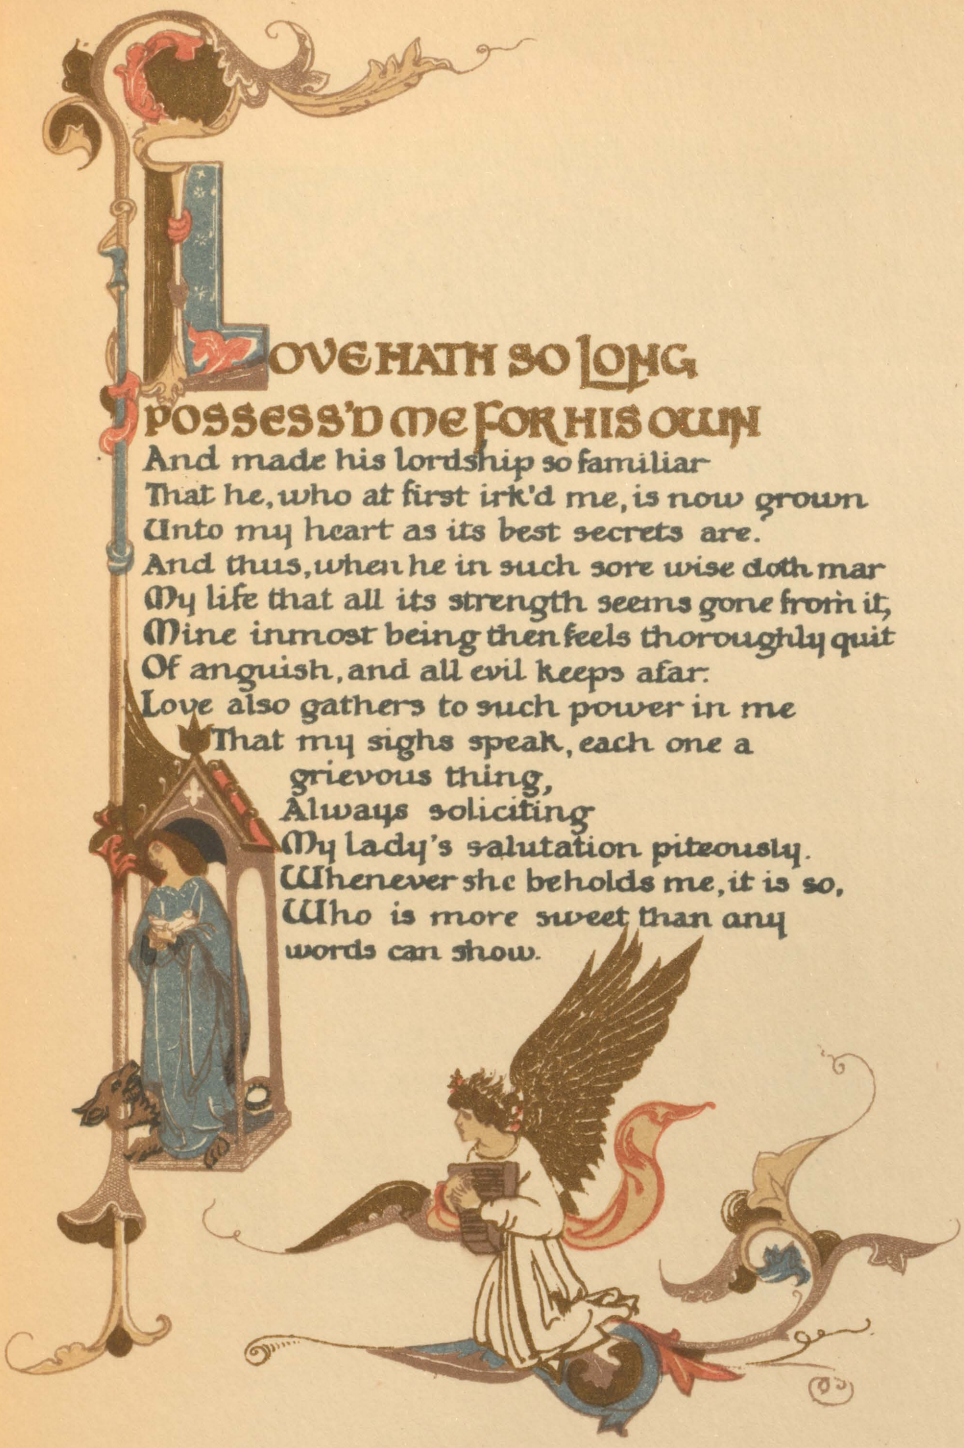 LOVE HATH SO LONG
POSSESS'D ME FOR HIS OWN
And made his lordship so familiar
That he, who at first irk'd me, is now grown
Unto my heart as its best secrets are.
And thus, when he in such sore wise doth mar
My life that all its strength seems gone from it,
Mine inmost being then feels thoroughly quit
Of anguish, and all evil keeps afar.
Love also gathers to such power in me
That my sighs speak, each one a
grievous thing,
Always soliciting
My lady's salutation piteously.
Whenever she beholds me, it is so,
Who is more sweet than any
words can show.